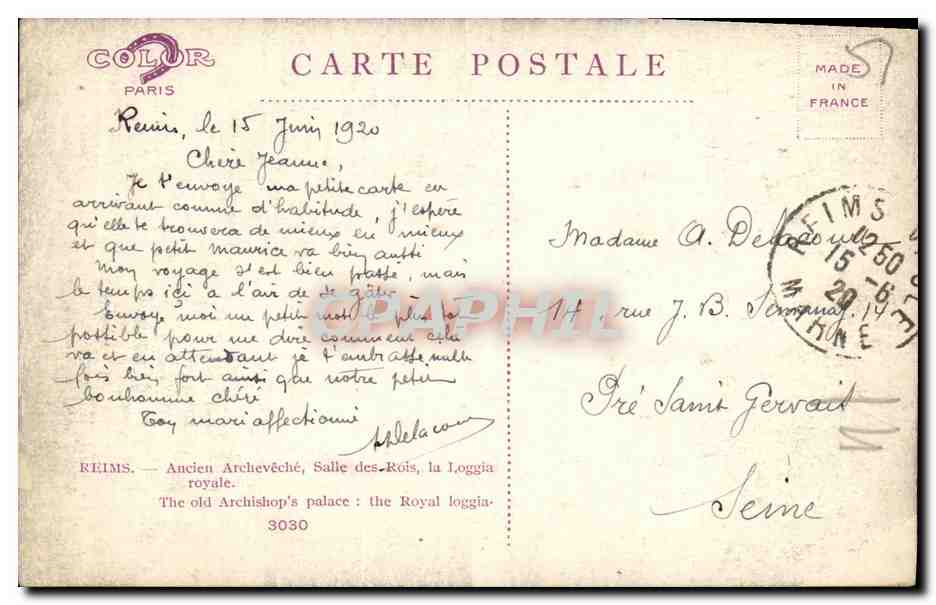 COLOR
PARIS
CARTE POSTALE
MADE
IN
FRANCE
Reims, le 15 Juin 1920
Chère Jeanne,
Je t'envoye ma petite carte en
arrivant comme d'habitude, j'espère
qu'elle te trouvera de mieux en mieux
et que petit Maurice va bien aussi
Mon voyage s'est bien passé, mais
le temps ici a l'air de se gâter
Envoye moi un petit mot le plus tôt
possible pour me dire comment cela
va et en attendant je t'embrasse mille
fois bien fort ainsi que notre petit
bonhomme chéri
Ton mari affectionné
Delacour
REIMS. — Ancien Archevêché, Salle des Rois, la Loggia
royale.
The old Archishop's palace : the Royal loggia-
3030
Madame A. Delacour
14 rue J. B. 14
Pré Saint Gervais
Seine
REIMS
1250
15-6
20
MARNE
CPAPHIL